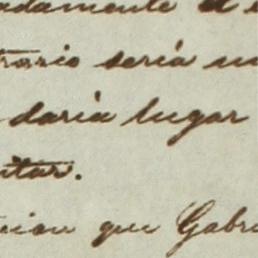 adamente
trario seria
daria lugar
ntar.
que Gabri